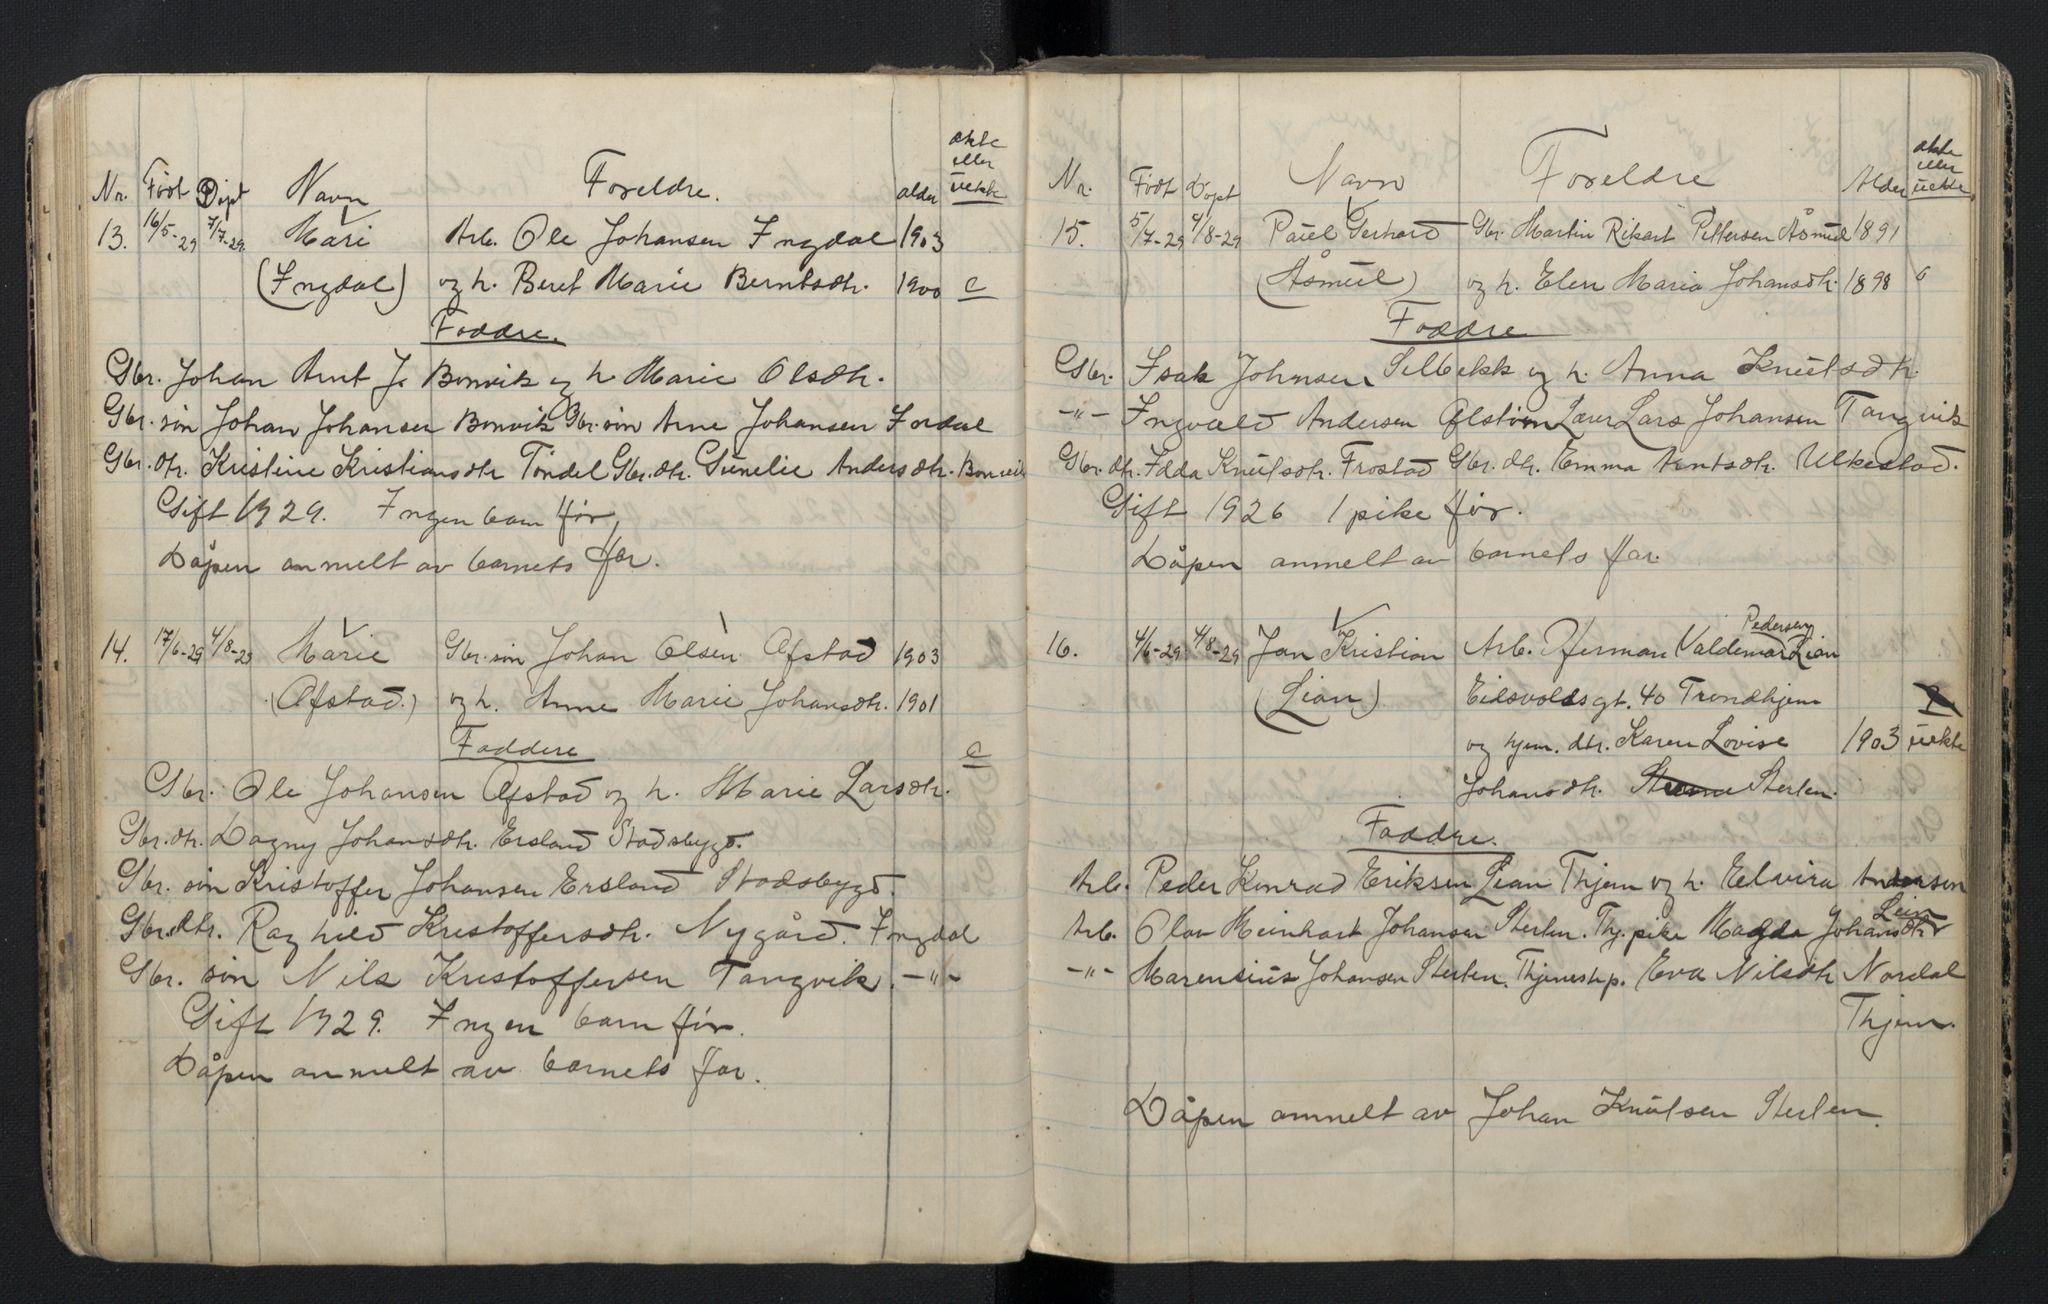 Nr. Født Døpt Navn Foreldre. alder ekte eller uekte
13. 16/5-29 7/7-29. Mari Arb. Ole Johansen Ingdal 1903
(Ingdal) og h. Beret Marie Berntsdtr. 1900 e
Faddre.
Gbr. Johan Arnt J. Bonvik og h. Marie Olsdtr.
Gbr. søn Johan Johansen Bonvik Gbr. søn Arne Johansen Indal
Gbr. dtr. Kristine Kristiansdtr Tøndel Gbr. dtr. Gunelie Andersdtr. Bonvik
Gift 1929. Ingen barn før,
Dåpen anmelt av barnets far.
14. 17/6-29 4/8-29 Marie Gbr. søn Johan Olsen Ofstad 1903
(Ofstad.) og h. Anne Marie Johansdtr. 1901
Faddere e
Gbr. Ole Johansen Ofstad og h. Marie Larsdtr.
Gbr. dtr. Dagny Johansdtr. Ersland Stadsbygd.
Gbr. søn Kristoffer Johansen Ersland Stadsbygd.
Gbr. dtr. Raghild Kristoffersdtr. Nygård. Ingdal
Gbr. søn Nils Kristoffersen Tangvik. -"-
Gift 1929. Ingen barn før.
Dåpen anmelt av barnets far.
Nr. Født Døpt Navn Foreldre Alder ekte eller uekte
15. 5/7-29 4/8-29 Paul Gerhard Gbr. Martin Rikart Pettersen Åsmul 1891
(Åsmul) og h. Elen Maria Johansdtr. 1898 e
Faddre
Gbr. Isak Johnsen Selbekk og h. Anna Knutsdtr.
-"- Ingvald Andersen Ølstøren Lærer Lars Johansen Tangvik
Gbr. dtr. Idda Knutsdtr. Frostad Gbr. dtr. Emma Arntsdtr. Ulkestad.
Gift 1926 1 pike før.
Dåpen anmelt av barnets far.
16. 4/6-29 4/8-29 Jan Kristian Arb. Herman Valdemar Pedersen Lian
(Lian) Eidsvoldsgt. 40 Trondhjem
og hjem. dtr. Karen Lovise 1903 uekte
Johansdtr. Sterten.
Faddre.
Arb. Peder Konrad Eriksen Lian Thjem og h. Elvira Andersen
Arb. Olav Meinhart Johansen Sterten. Thj. pike Magda Johansdtr Lein
-"- Marensius Johansen Sterten. Thjenestp. Eva Nilsdtr Nordal
Thjem.
Dåpen anmelt av Johan Knutsen Sterten.